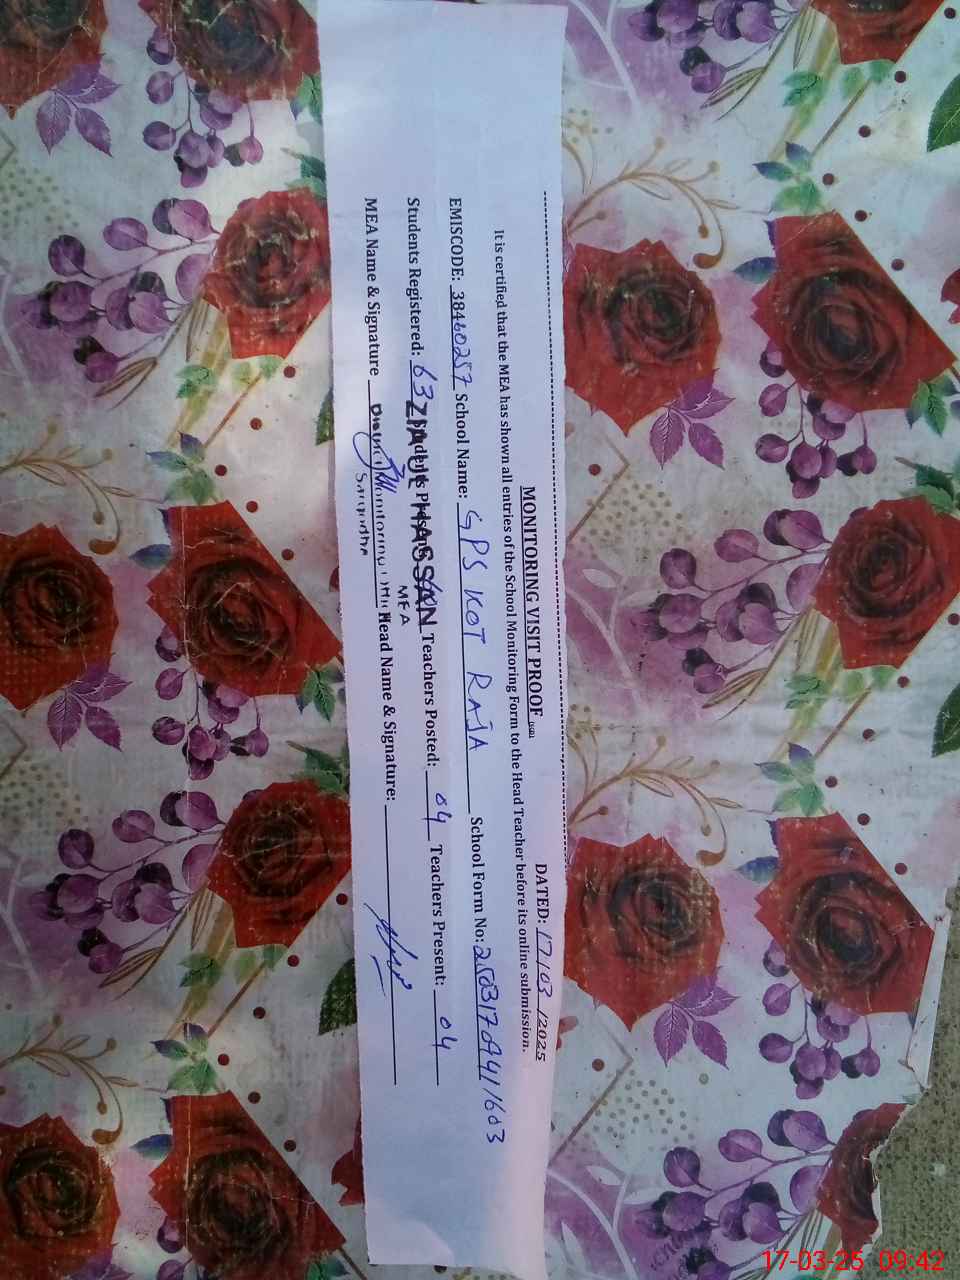 MONITORING VISIT PROOF
DATED: 17/03/2025
It is certified that the MEA has shown all entries of the School Monitoring Form to the Head Teacher before its online submission.
EMISCODE: 38460257 School Name: GPS KOT RAJA School Form No: 
Students Registered: 63 Students Teachers Posted: 04 Teachers Present: 04
ZIA UL HASSAN
MEA
MEA Name & Signature Head Name & Signature:
District Monitoring
Sargodha
17-03-25 09:42